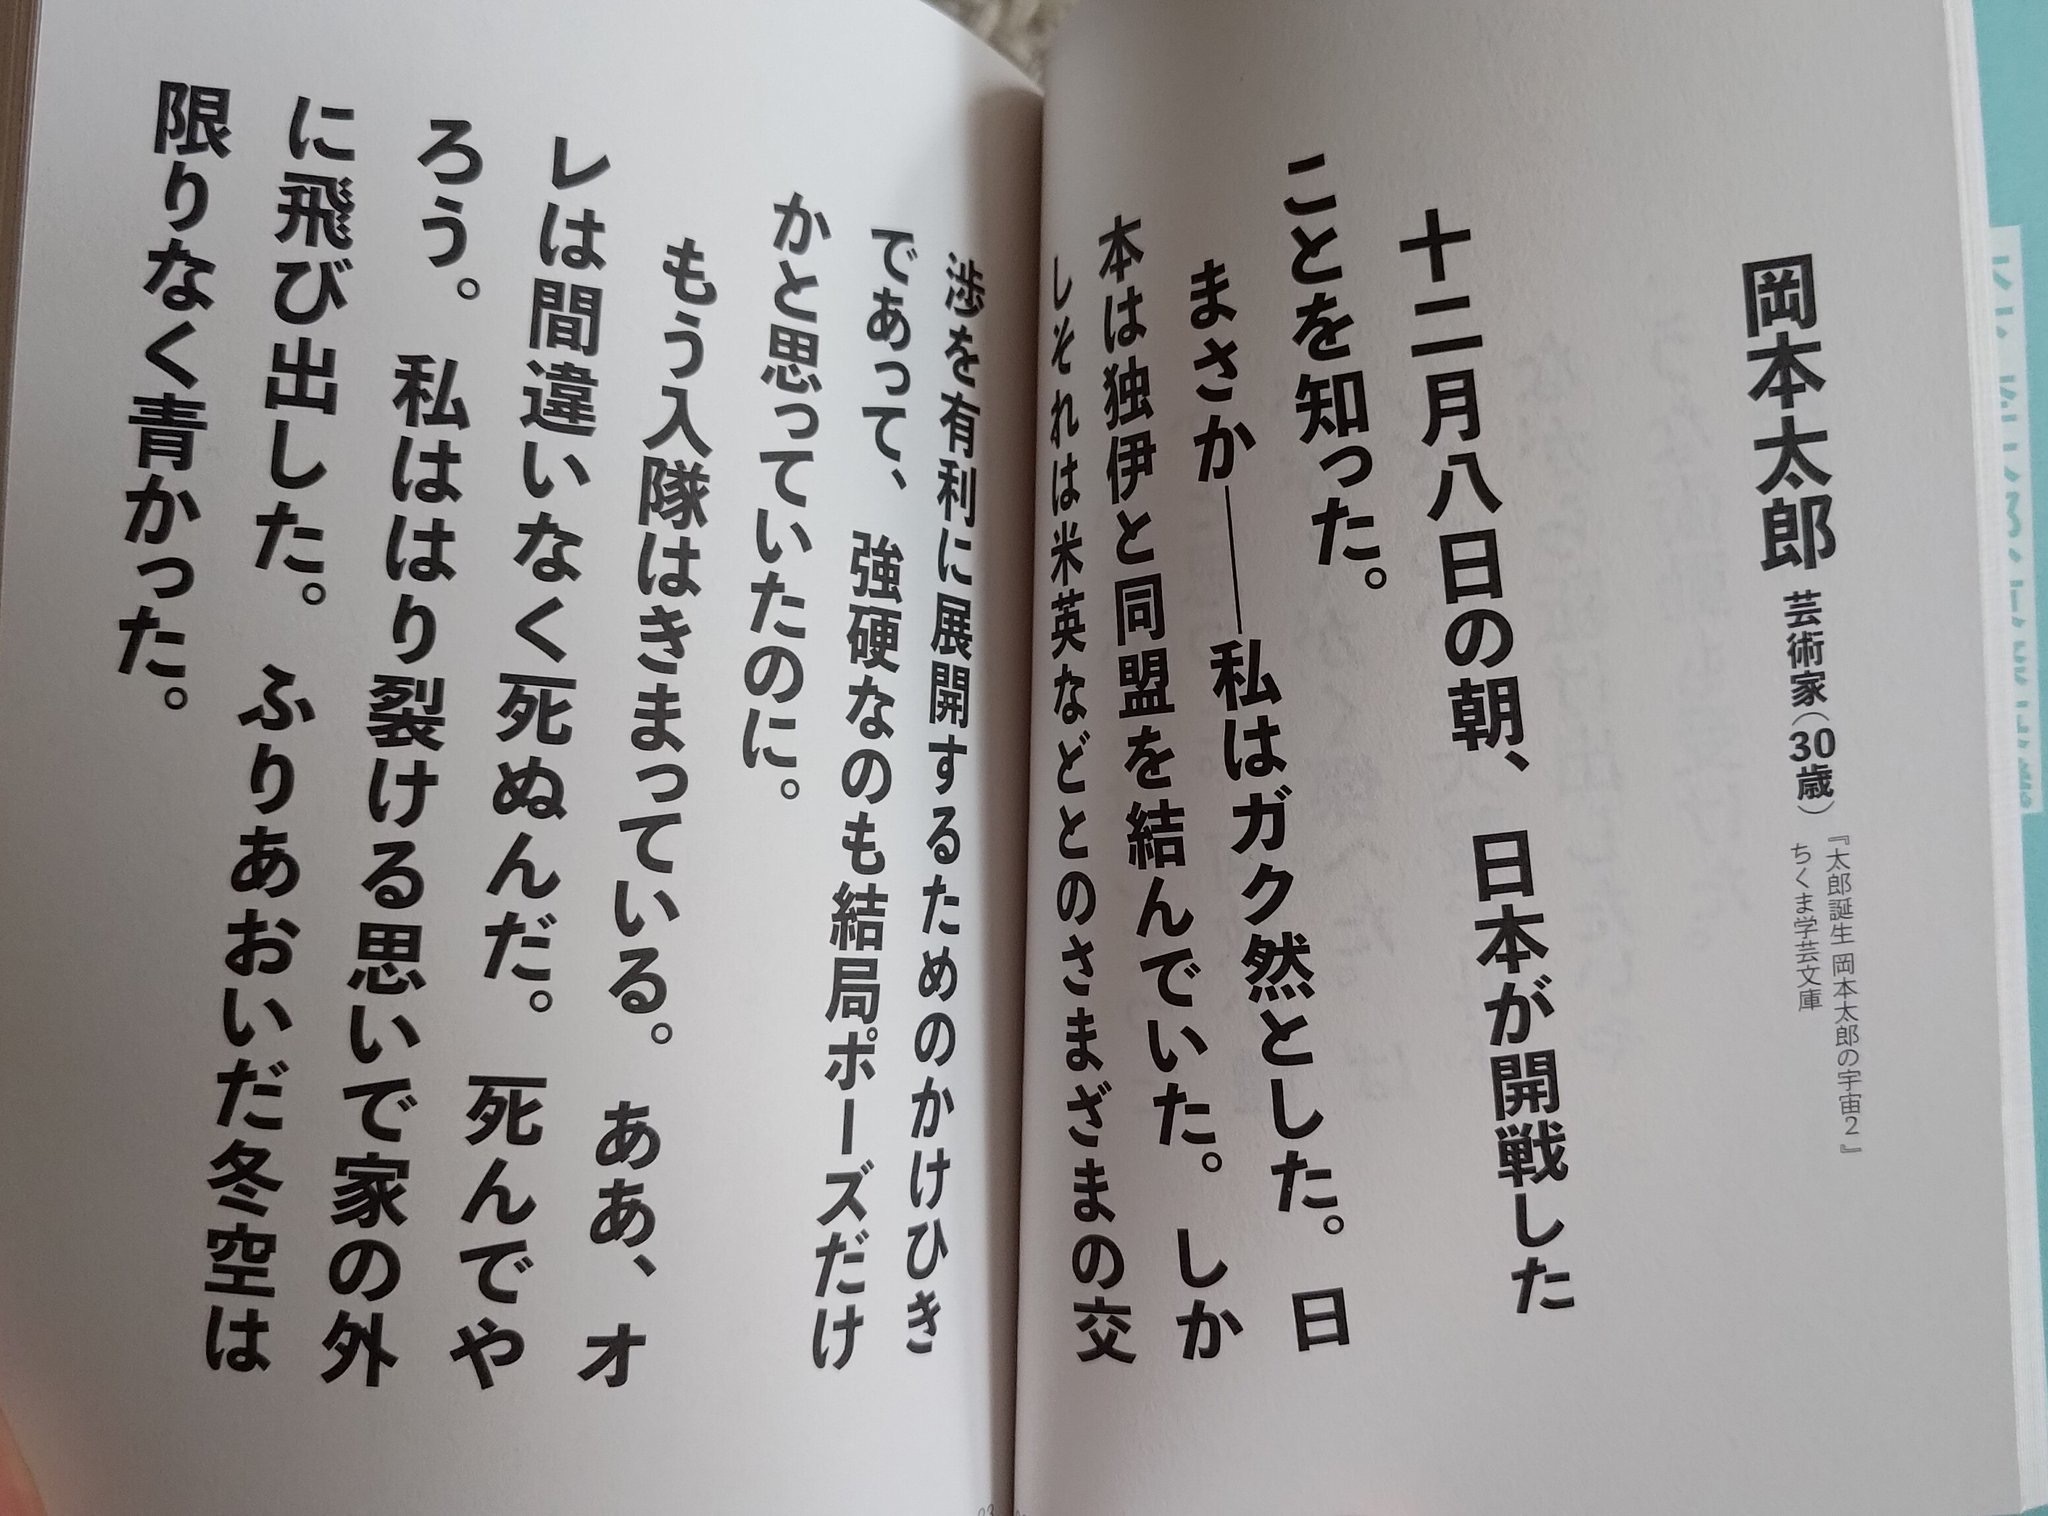 岡本太郎 芸術家(30歳)
『太郎誕生 岡本太郎の宇宙2』
ちくま学芸文庫
十二月八日の朝、日本が開戦した
ことを知った。
まさか――私はガク然とした。日
本は独伊と同盟を結んでいた。しか
しそれは米英などとのさまざまの交
渉を有利に展開するためのかけひき
であって、強硬なのも結局ポーズだけ
かと思っていたのに。
もう入隊はきまっている。ああ、オ
レは間違いなく死ぬんだ。死んでや
ろう。私ははり裂ける思いで家の外
に飛び出した。ふりあおいだ冬空は
限りなく青かった。